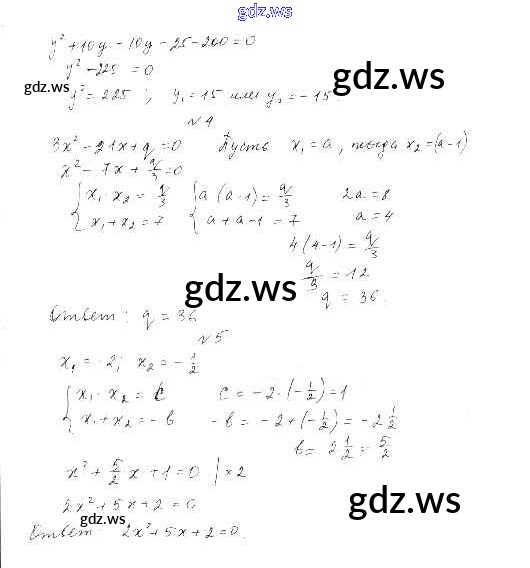 gdz.ws
y² + 10y - 10y - 25 - 200 = 0
y² - 225 = 0
gdz.ws
gdz.ws
y² = 225 ; y₁ = 15 или y₂ = -15.
№4
3x² - 21x + q = 0 Пусть x₁ = a, тогда x₂ = (a-1)
x² - 7x + q/3 = 0
{ x₁ · x₂ = q/3 { a(a-1) = q/3 2a = 8
x₁ + x₂ = 7 a + a - 1 = 7 a = 4
4(4-1) = q/3
q/3 = 12
gdz.ws
q = 36.
Ответ: q = 36
№5
x₁ = -2; x₂ = -1/2
{ x₁ · x₂ = c c = -2 · (-1/2) = 1
x₁ + x₂ = -b -b = -2 + (-1/2) = -2 1/2
b = 2 1/2 = 5/2
x² + 5/2 x + 1 = 0 | × 2
gdz.ws
2x² + 5x + 2 = 0
gdz.ws
Ответ: 2x² + 5x + 2 = 0.